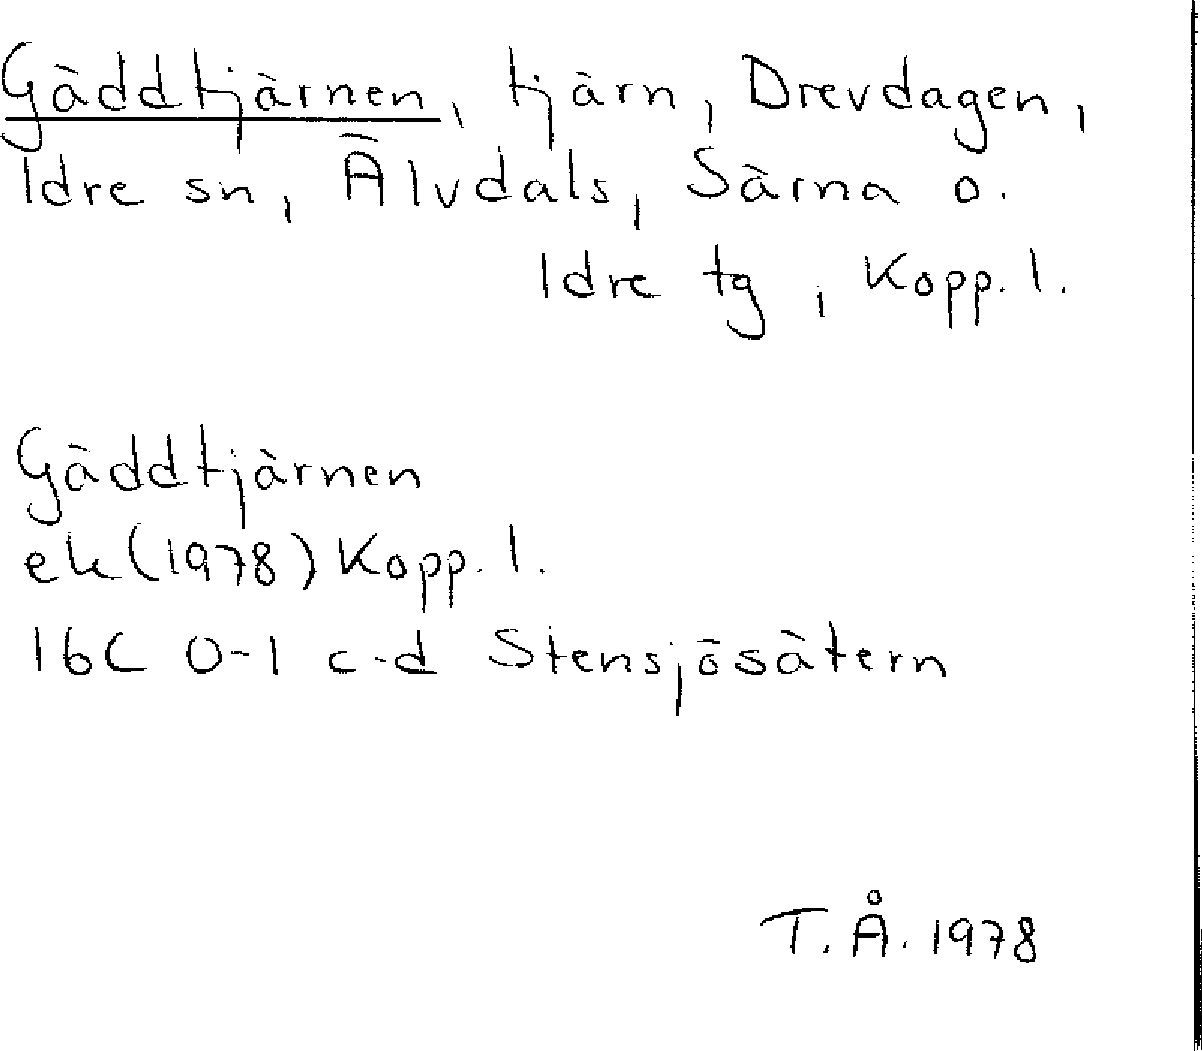 Gäddtjärnen, tjärn, Drevdagen,
Idre sn, Älvdals, Särna o.
Idre tg, Kopp. l.
Gäddtjärnen
ek (1978) Kopp. l.
16C 0-1 c-d Stensjösätern
T.Å. 1978